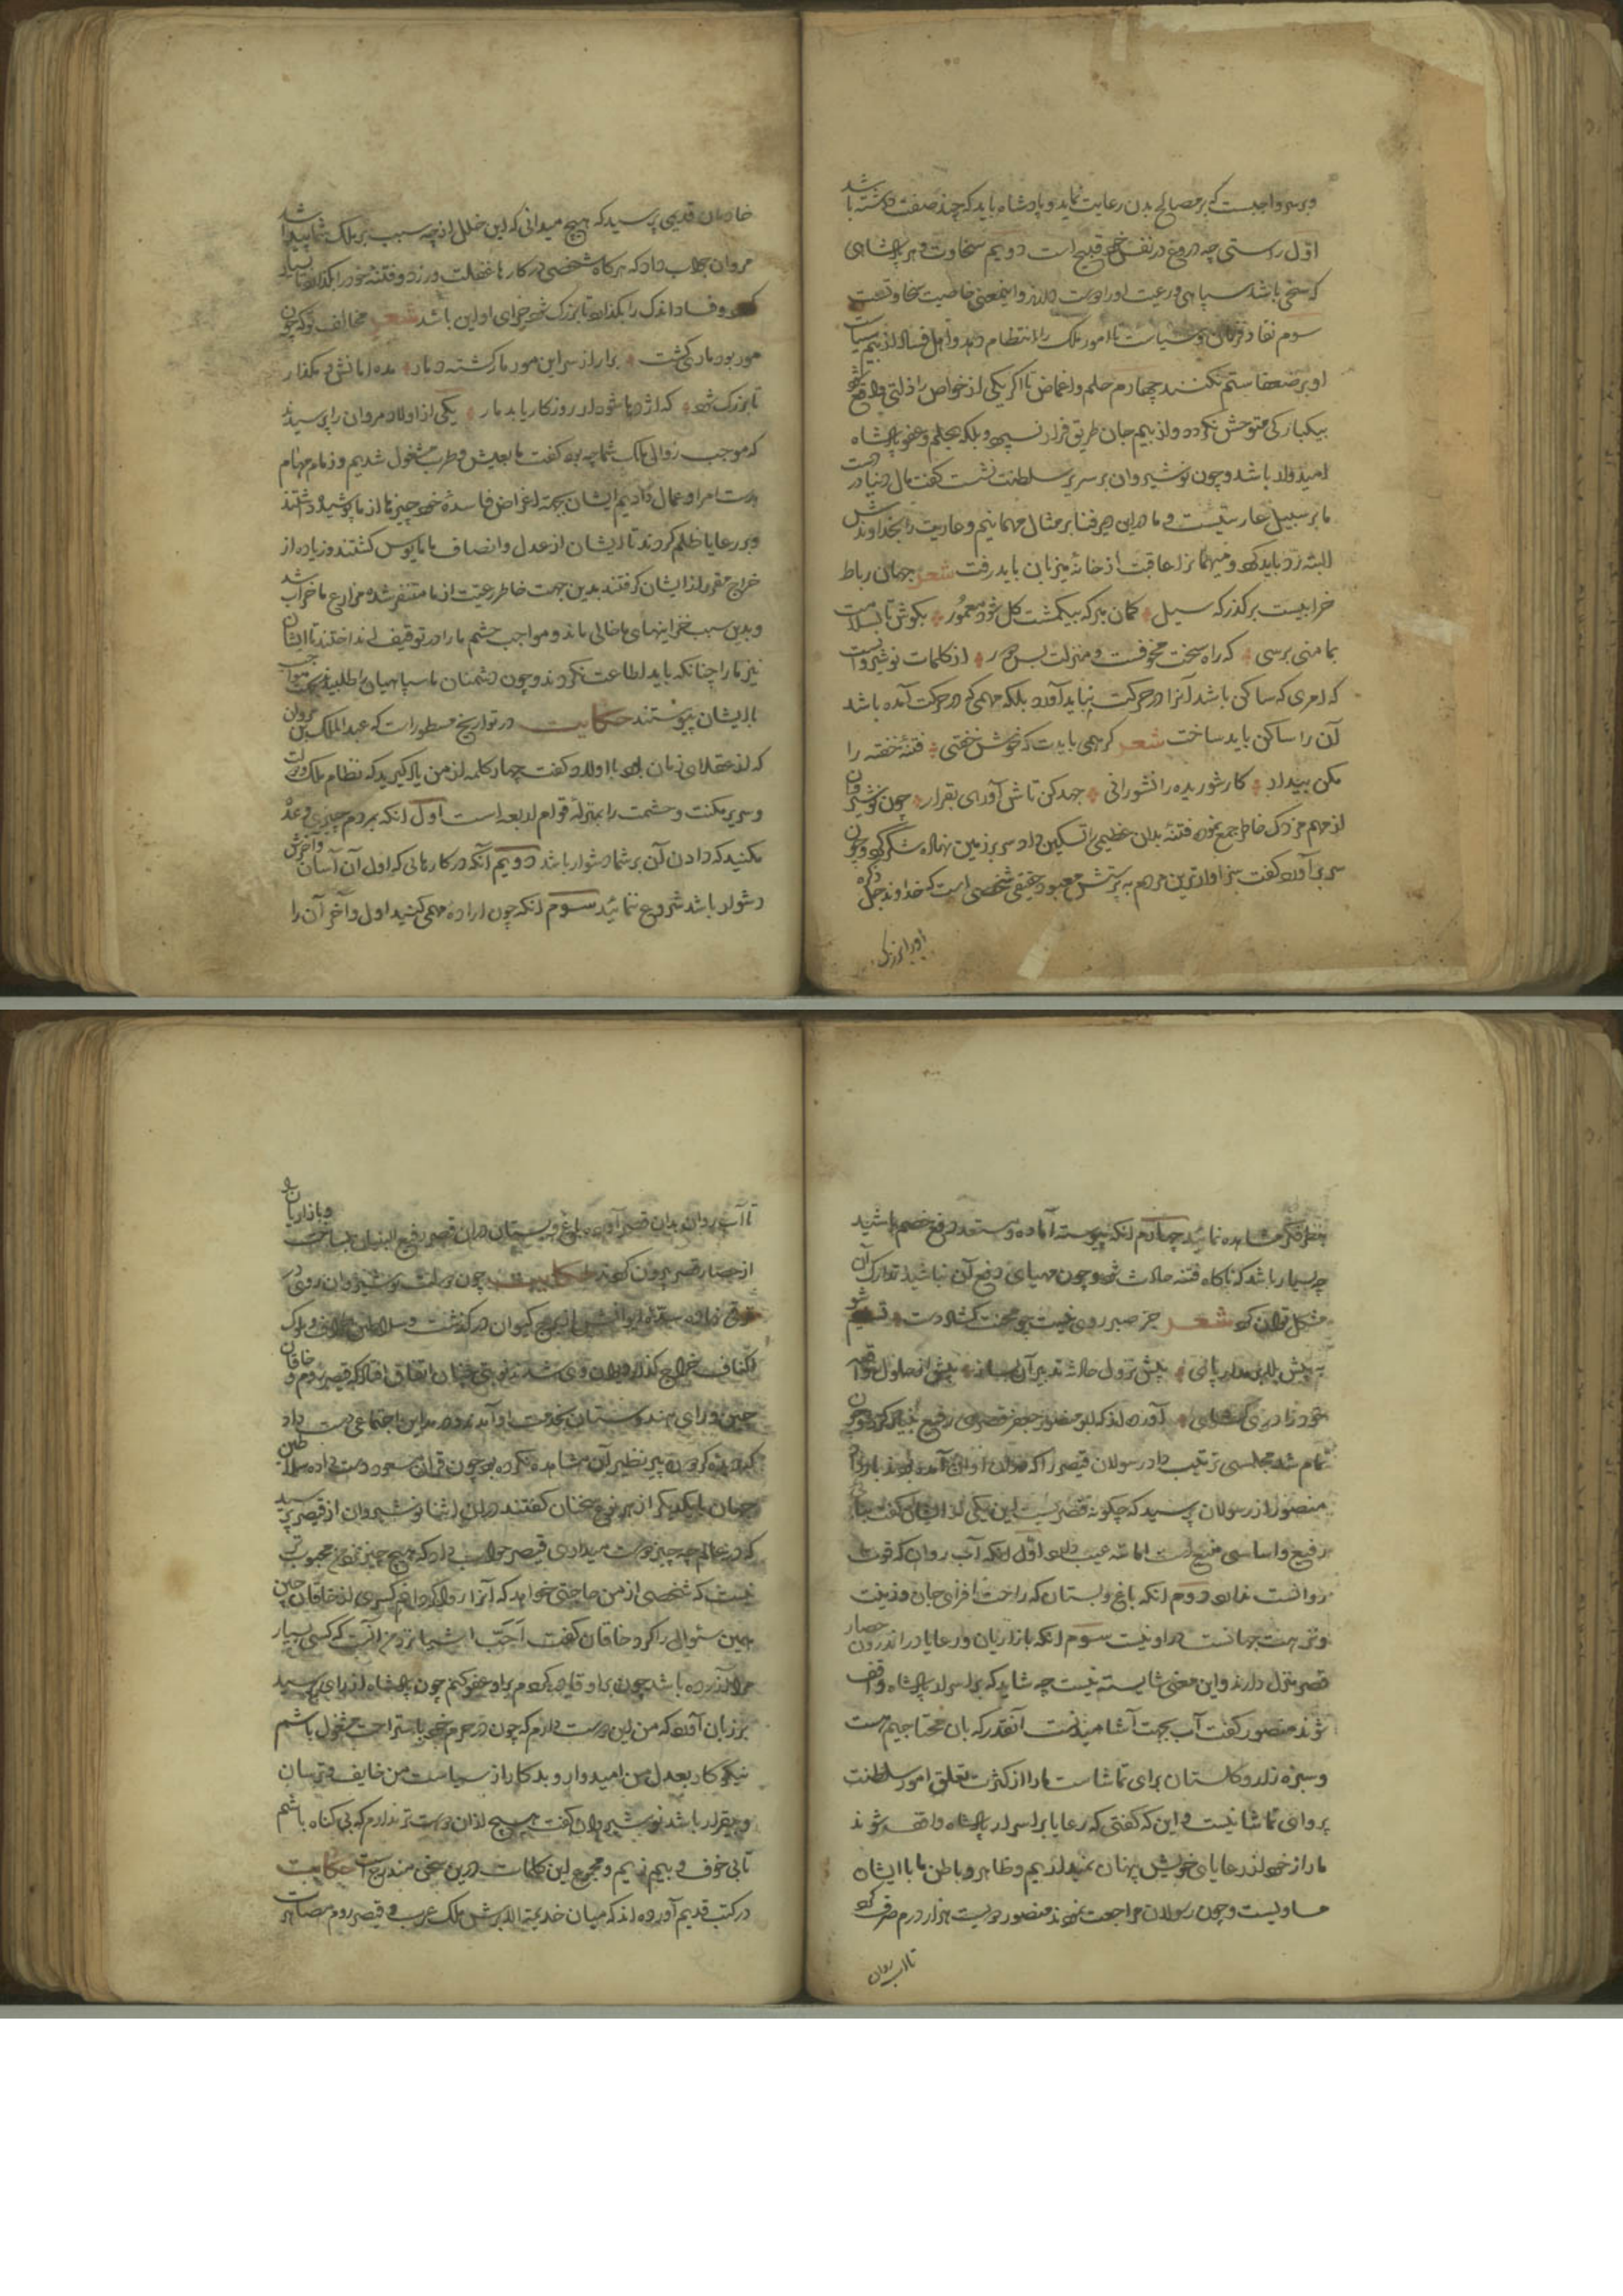 و بر سر واجبست که بر مصالح بدن رعایت نماید و پادشاه باید که چند صفت داشته باشد
اول راستی چه دروغ در نفس خود قبیح است دویم سخاوت و هر پادشاهی
که سخی باشد سپاهی و رعیت او را دوست دارند و اینمعنی خاصیت سخاوتست
سوم نفاد فرمان و سیاست تا امور ملک را انتظام دهد و اهل فساد از بیم سیاست
او بر ضعفا ستم نکنند چهارم حلم و اغماض تا اگر یکی از خواص را ذلتی واقع شود
بیکبارگی متوحش نگردد و از بیم جان طریق فرار نسپرد بلکه بحلم و عفو پادشاه
امیدوار باشد و چون نوشیروان بر سریر سلطنت نشست گفت مال دنیا در دست
ما بر سبیل عاریتست و ما در این دیر فنا بر مثال مهمانیم و عاریت را بخداوندش
البته رد باید کرد و میهمانرا عاقبت از خانۀ میزبان باید رفت شعر جهان رباط
خرابیست بر گذرگه سیل گمان مبر که بیکمشت گل شود معمور بکوش تا بسلامت
بمامنی برسی که راه سخت مخوفست و منزلت بس دور از کلمات نوشیروانست
که امری که ساکن باشد آنرا در حرکت نباید آورد بلکه مهمی که در حرکت آمده باشد
آن را ساکن باید ساخت شعر گر همی بایدت که خوش خفتی فتنۀ خفته را
مکن بیدار کار شوریده را نشورانی جهد کن تاش آوری بقرار چون نوشیروان
از مهم مزدک خاطر جمع نمود فتنۀ بدان عظیمی را تسکین داد سر بر زمین نهاده شکر کرد و چون
سر برآورد گفت سزاوارترین مردم به پرستش معبود حقیقی شخصی است که خداوند جل ذکره
او را بزرگی
خادمان قدیمی پرسید که هیچ میدانی که این خلل از چه سبب بر ملک شما پیدا شد
مروان جواب داد که هر کاه شخصی در کارها غفلت ورزد و فتنۀ خود را بگذارد تا بسیار
و فساد اندک را بگذارد تا بزرگ شود جزای او این باشد شعر مخالف تو که چون
مور بود مار کشت برار از سر این مور مار کشته دمار مده امانش و مگذار
تا بزرگ شود که اژدها شود ار روزکار یابد مار یکی از اولاد مروان را پرسیدند
که موجب زوال ملک شما چه بود گفت ما بعیش و طرب مشغول شدیم و زمام مهام
بدست امرا و عمال دادیم ایشان بجهة اغراض فاسدۀ خود چیزها از ما پوشیده داشتند
و بر رعایا ظلم کردند تا ایشان از عدل و انصاف ما مایوس کشتند و زیاده از
خراج مقرر از ایشان گرفتند بدین جهت خاطر رعیت از ما متنفر شد و مزارع ما خراب شد
و بدین سبب خزاینهای ما خالی ماند و مواجب حشم ما را در توقیف انداختند تا ایشان
نیز ما را چنانکه باید اطاعت نکردند و چون دشمنان ما سپاهیان را طلبیدند
با ایشان پیوستند حکایت در تواریخ مسطور است که عبدالملک بن مروان
که از عقلای زمان بود با اولاد گفت چهار کلمه از من یاد گیرید که نظام ملک و دولت
و سریر مکنت و حشمت را بمنزلۀ قوام اربعه است اول آنکه بمردم چیزی وعده
مکنید که دادن آن بر شما دشوار باشد دویم آنکه در کارهائی که اول آن آسان و آخرش
دشوار باشد شروع ننمائید سوم آنکه چون ارادۀ مهمی کنید اول و آخر آن را
بنظر فکر مشاهده نمائید چهارم آنکه پیوسته آماده و مستعد دفع خصم باشید
چه بسیار باشد که ناکاه فتنه حادث شود و چون مهیای دفع آن نباشید تدارک آن
مشکل توان کرد شعر جز صبر روی نیست چو محنت کشاد دست
پیش نزول حادثه تدبیر آن بساز پیش از حلول واقعه
آورده اند که ابو منصور جعفر قصری رفیع بنا کرد چون
تمام شد مجلسی ترتیب داد رسولان قیصر را که در آن اوان آمده بودند بار داد
منصور از رسولان پرسید که چگونه قصریست این یکی از ایشان گفت جای
رفیع و اساسی منیع است اما سه عیب دارد اول آنکه آب روان که قوت
روانست ندارد دوم آنکه باغ و بستان که راحت افزای جان و زینت
و نزهت جهانست در او نیست سوم آنکه بازاریان و رعایا در اندرون حصار
قصر منزل دارند و این معنی شایسته نیست چه شاید که بر اسرار پادشاه واقف
شوند منصور گفت آب بجهت آشامیدنست آنقدر که بان محتاجیم هست
و سبزه زار و کلستان برای تماشاست ما را از کثرت تعلق امور سلطنت
پروای تماشا نیست و این که گفتی که رعایا بر اسرار پادشاه واقف شوند
ما راز خود از رعایای خویش پنهان نمیداریم و ظاهر و باطن ما با ایشان
مساویست و چون رسولان مراجعت نمودند منصور دویست هزار درم صرف کرد
تا آب روان
تا آب روان بدان قصر آورد و باغ و بستان در آن قصر رفیع البنیان بساخت و بازاریان را
از حصار قصر بیرون کردند حکایت چون دولت نوشیروان روی
ترقی نهاد و سدۀ ایوانش از اوج کیوان در گذشت و سلاطین
اکناف خراج گذار دیوان وی شدند نوبتی چنان اتفاق افتاد که قیصر روم و خاقان
چین و رای هندوستان بخدمت او آمدند و در این اجتماعی دست داد
که دیده گردون پیر نظیر آن مشاهده نکرده بود چون قران سعود دست داده سلاطین
جهان با یکدیگر از هر نوع سخنان گفتند در این اثنا نوشیروان از قیصر پرسید
که در عالم چه چیز دوست میداری قیصر جواب داد که هیچ چیز نزد من محبوب تر
نیست که شخصی از من حاجتی خواهد که آنرا روا گردانم کسری از خاقان چین
همین سئوال را کرد خاقان گفت احب اشیا نزد من آنست که کسی بسیار
مرا آزرده باشد چون بر او قادر کردم بر او عفو کنم چون پادشاه از رای پرسید
بر زبان آورد که من این دوست دارم که چون در حرم خود باستراحت مشغول باشم
نیکوکار بعدل من امیدوار و بدکار از سیاست من خایف و ترسان
و بیقرار باشد نوشیروان گفت هیچ از آن دوست تر ندارم که بی کناه باشم
تا بی خوف و بیم زییم و مجموع این کلمات در این سخن مندرج است حکایت
در کتب قدیم آورده اند که میان خدیمة الابرش ملک عرب و قیصر روم مصاهر